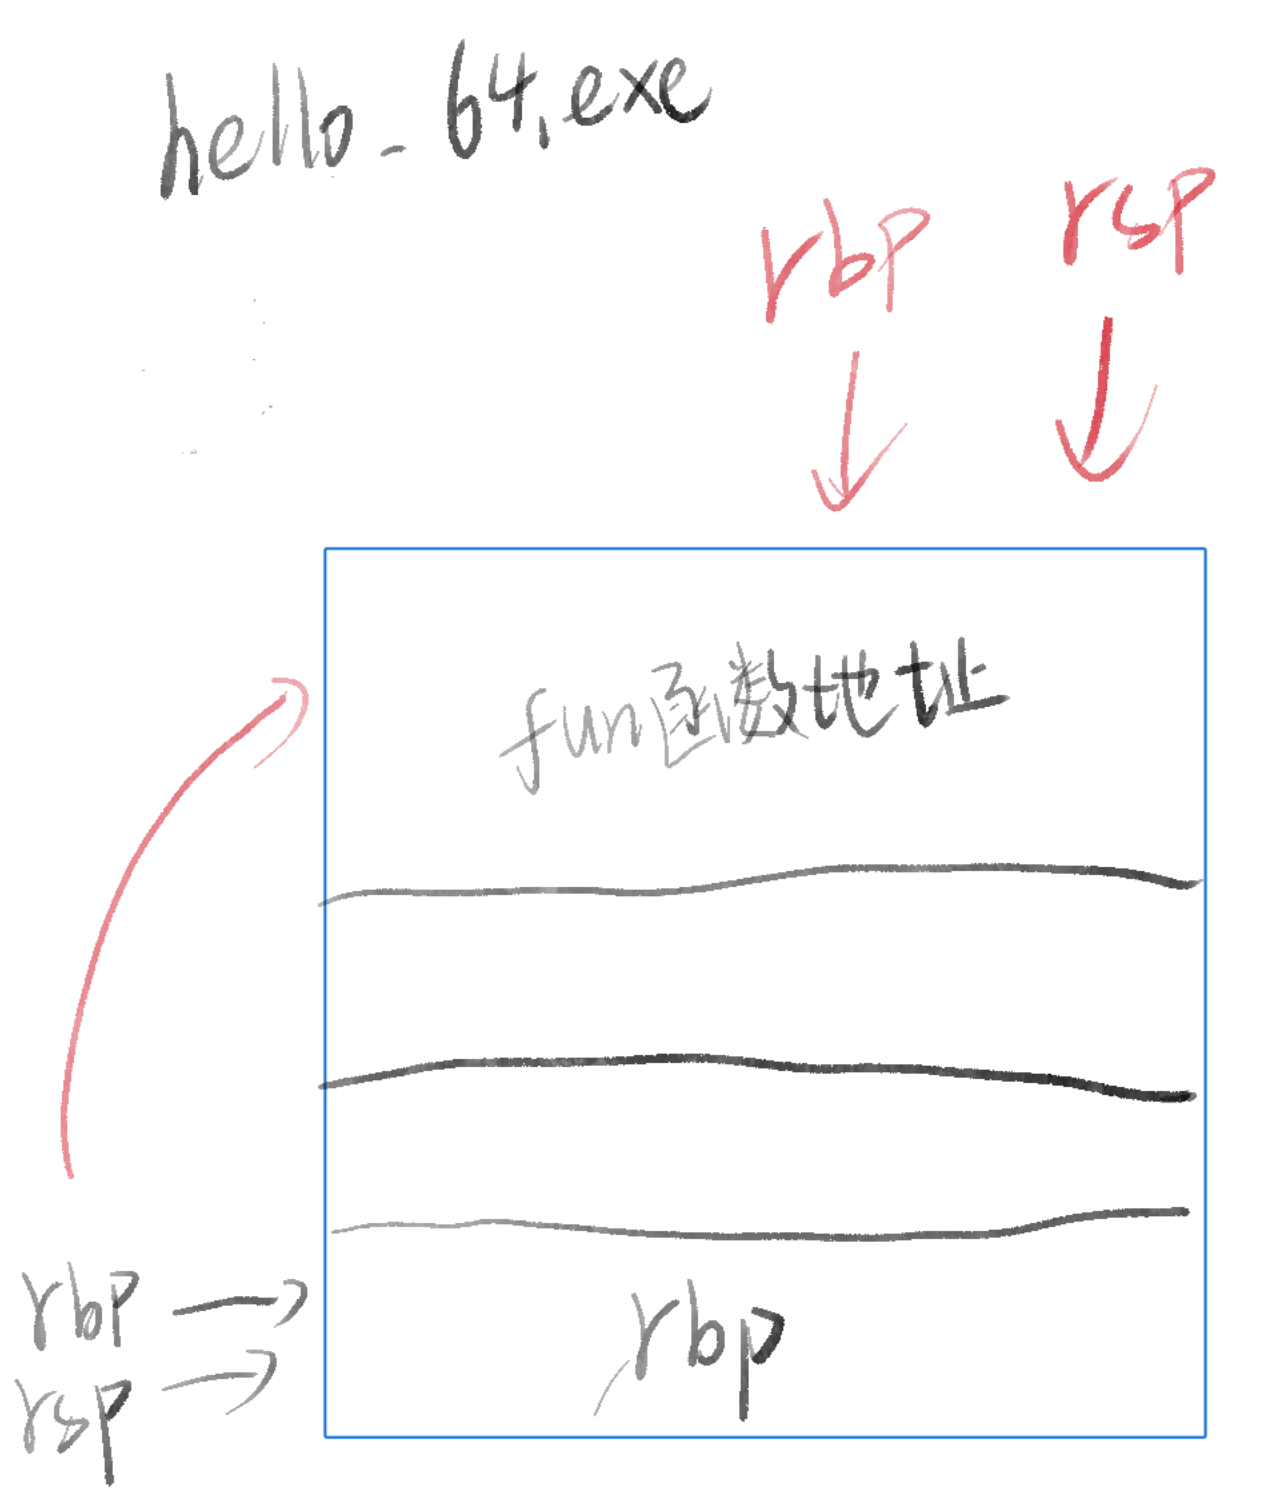 hello_64.exe
rbp rsp
fun函数地址
rbp
rbp
rsp